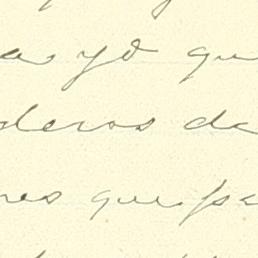 a, yo qu
deros de
res que pa